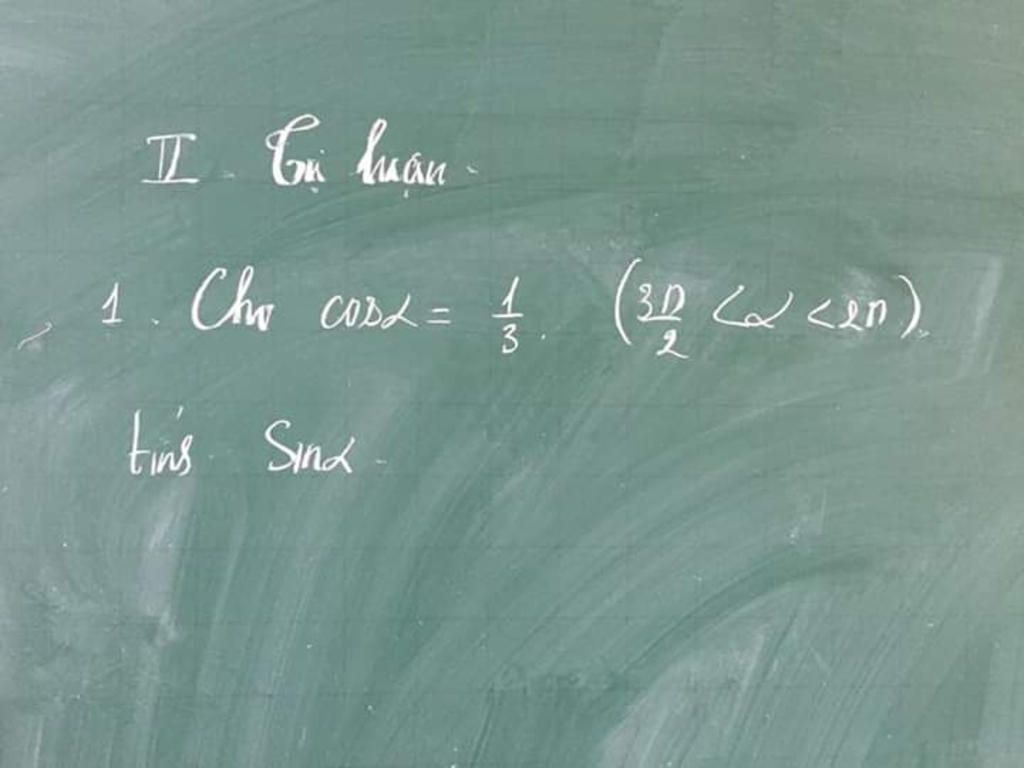 II. Tự luận.
1. Cho cosα = 1/3. (3π/2 < α < 2π).
tính Sinα.